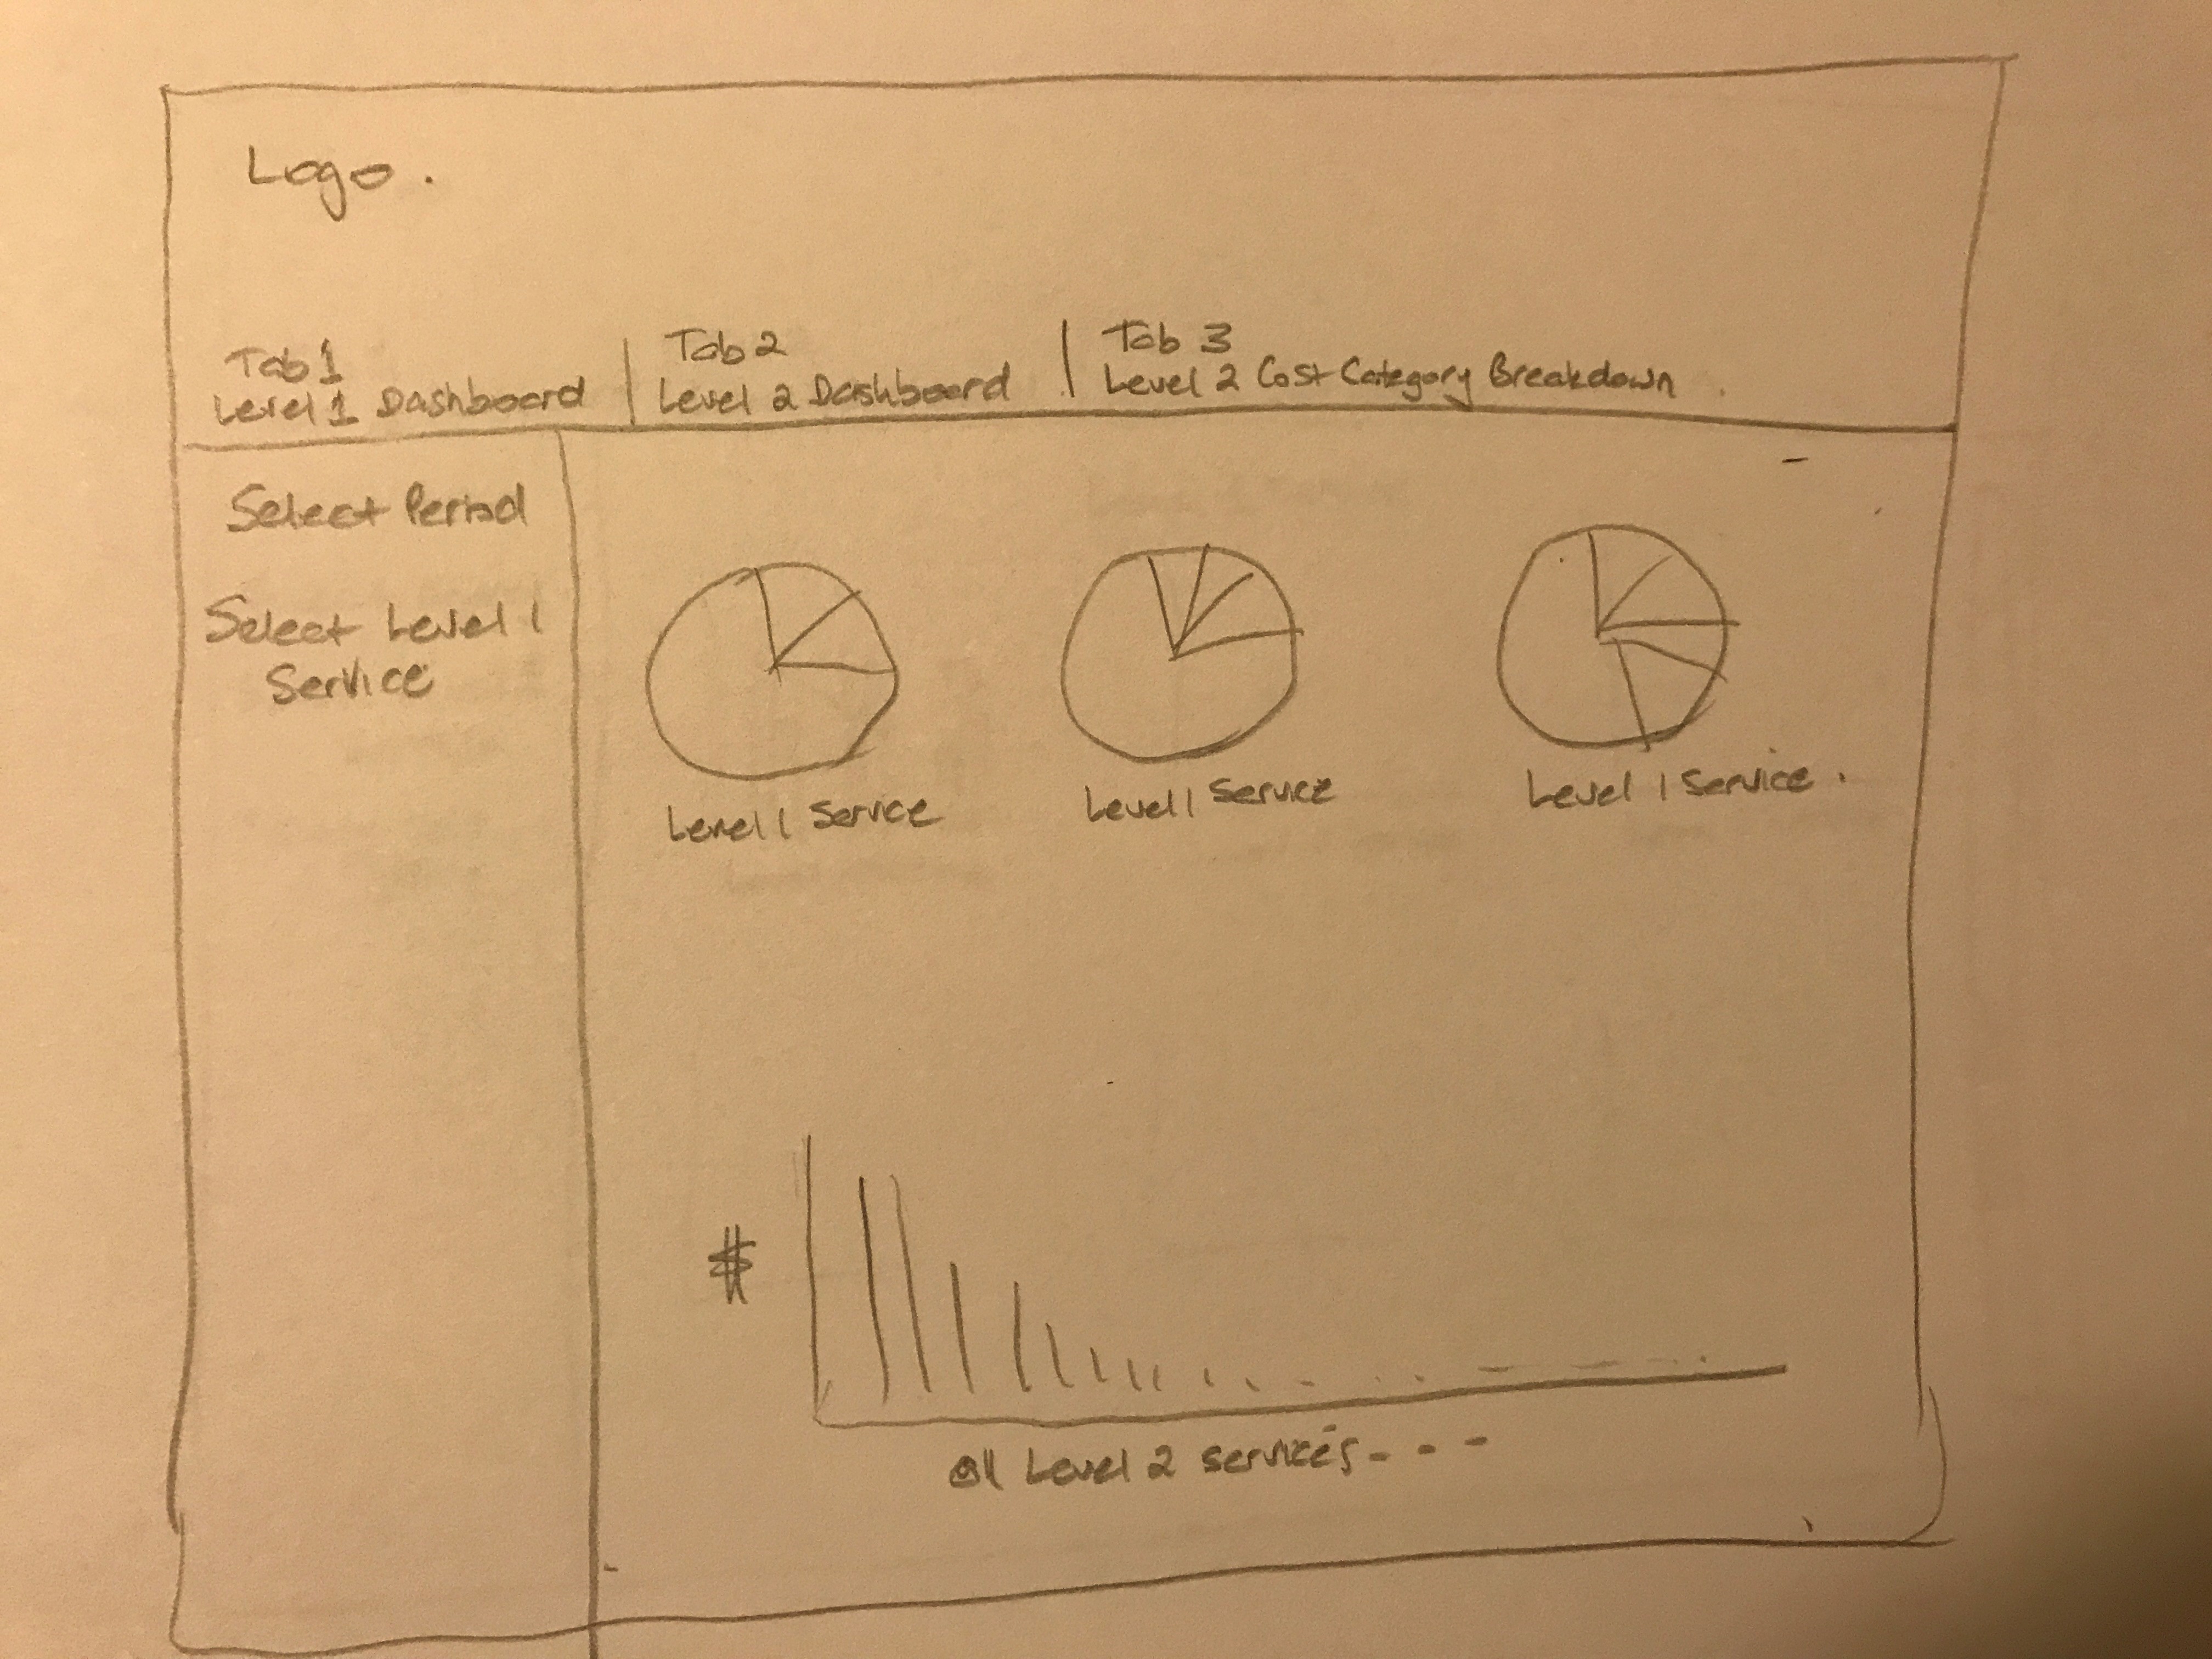 Logo.
Tab 1
Level 1 Dashboard
Tab 2
Level 2 Dashboard
Tab 3
Level 2 Cost Category Breakdown
Select Period
Select Level 1
Service
Level 1 Service
Level 1 Service
Level 1 Service.
$
all Level 2 services - - -